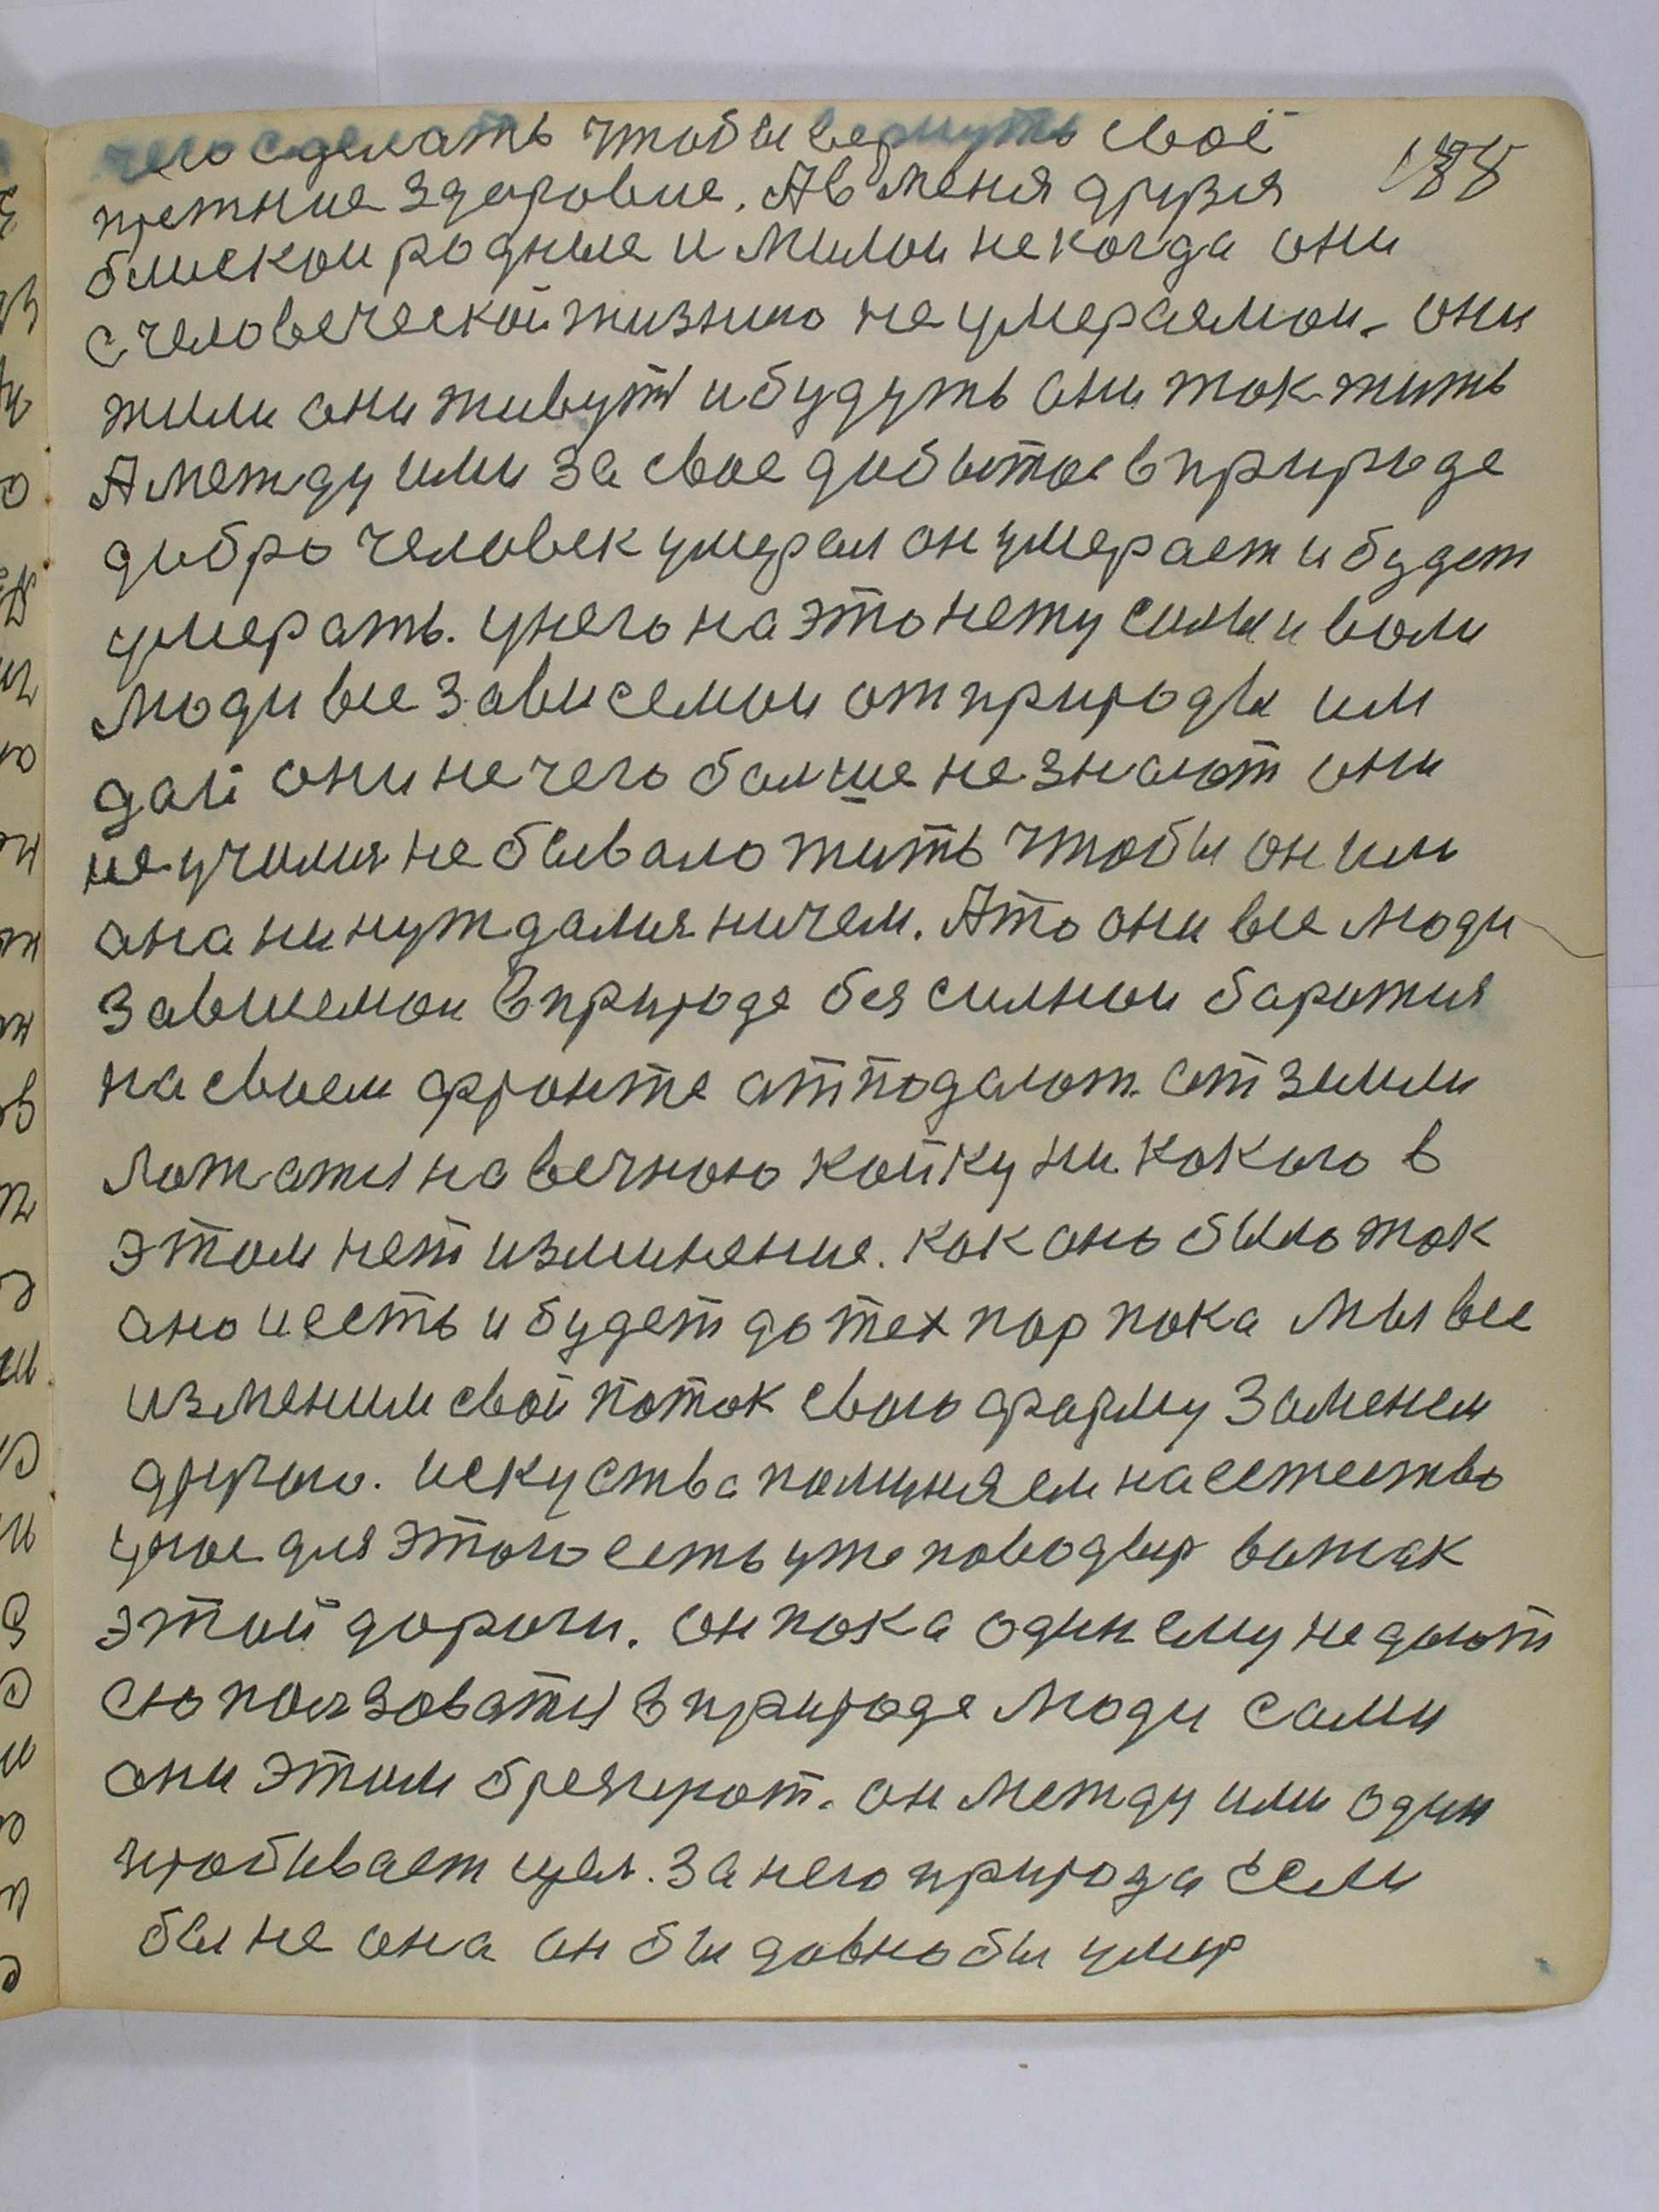 чего сделать чтобы вернуть своё
прежние здоровие. А в меня друзя
блискои родные и милои некогда они
с человеческой жизнию не умераемои. они
жили они живуть и будуть они так жить
А между ими за свое добытое в природе
добро человек умерал он умерает и будет
умерать. у него на это нету силы и воли
люди все зависемои от природы им
дай они не чего болше не знают они
не учился небывало жить чтобы он им
она ни нуждался ничем. А то они все люди
зависемои в природе бессилнои боротся
на своем фронте отподают от земли
ложатся на вечною койку ни какого в
этом нет изминение. как оно было так
оно и есть и будет до тех пор пока мы все
изменим свой поток свою форму заменем
другою. искуства поминяем на естество
у нас для этого есть уже поводырь вожак
этой дороги. он пока один ему не дают
сю ползоватся в природе люди сами
они этим брезгуют. он между ими один
пробивает цел. за него природа если
бы не она он бы давно бы умер